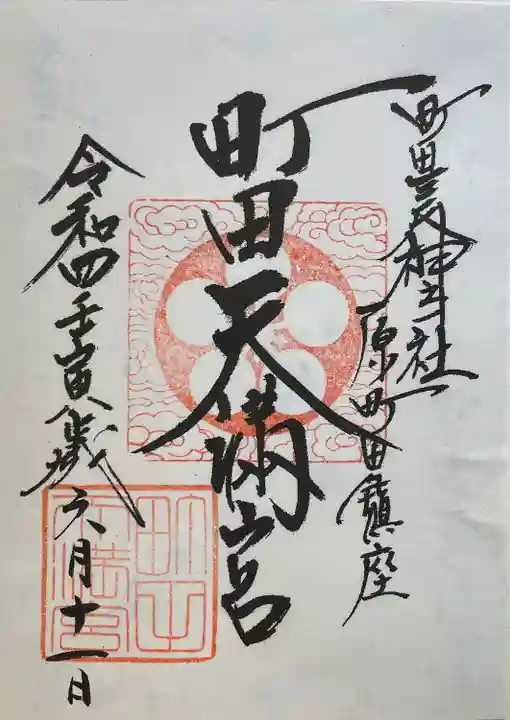 町田天神社
原町田鎮座
町田天満宮
令和四壬寅歳六月十一日
町田天満宮